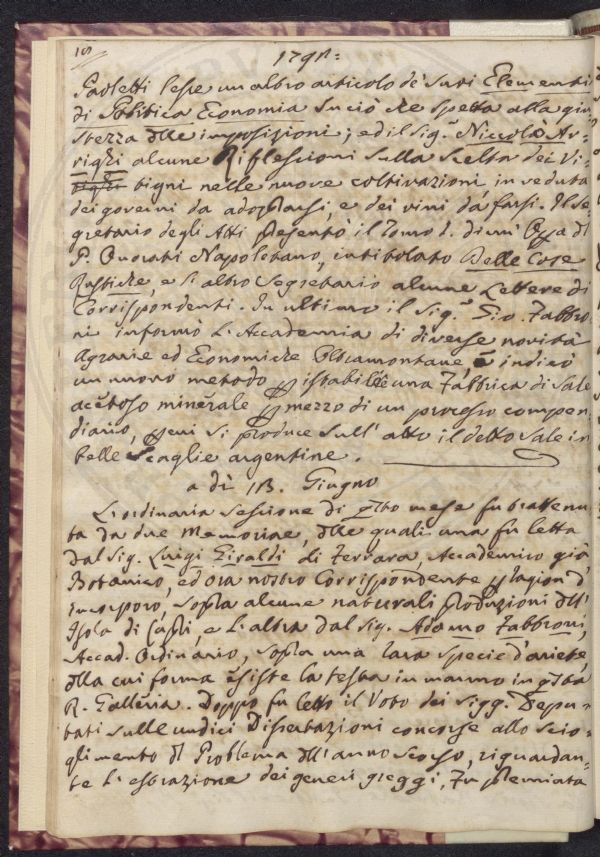 18
1791:
Paoletti lesse un altro articolo de' suoi Elementi
di Politica Economia su ciò che spetta alla giu-
stezza dlle imposizioni; ed il Sig.r Niccolò Ar-
righi alcune Riflessioni sulla scelta dei Vi-
bigni nelle nuove coltivazioni, in veduta
dei governi da adoprarsi, e dei vini da farsi. Il Se-
gretario degli Atti presentò il Tomo I. di un' Opa dl
P. Onorati Napoletano, intitolato Delle Cose
Rustiche, e l' altro Segretario alcune Lettere di
Corrispondenti. In ultimo il Sig.r Gio. Fabbro-
ni informò l' Accademia di diverse novità
Agrarie ed Economiche Oltramontane, e indicò
un nuovo metodo p istabilire una Fabbrica di Sale
acetoso minerale p mezzo di un processo compen-
diario, p cui si produce sull' atto il detto Sale in
belle scaglie argentine.
a dì 18. Giugno
L' ordinaria sessione di qsto mese fu trattenu-
ta da due Memorie, dlle quali una fu letta
dal Sig. Luigi Giraldi di Ferrara, Accademico già
Botanico, ed ora nostro Corrispondente p ragion d'
incorporo, sopra alcune naturali produzioni dll'
Isola di Capri, e l' altra dal Sig. Adamo Fabbroni,
Accad. Ordinario, sopra una rara specie d' ariete,
dlla cui forma esiste la testa in marmo in qsta
R. Galleria. Doppo fu letto il Voto dei Sigg. Depu-
tati sulle undici Dissertazioni concorse allo scio-
glimento dl Problema dll' anno scorso, riguardan-
te l' estrazione dei generi greggi, fu premiata